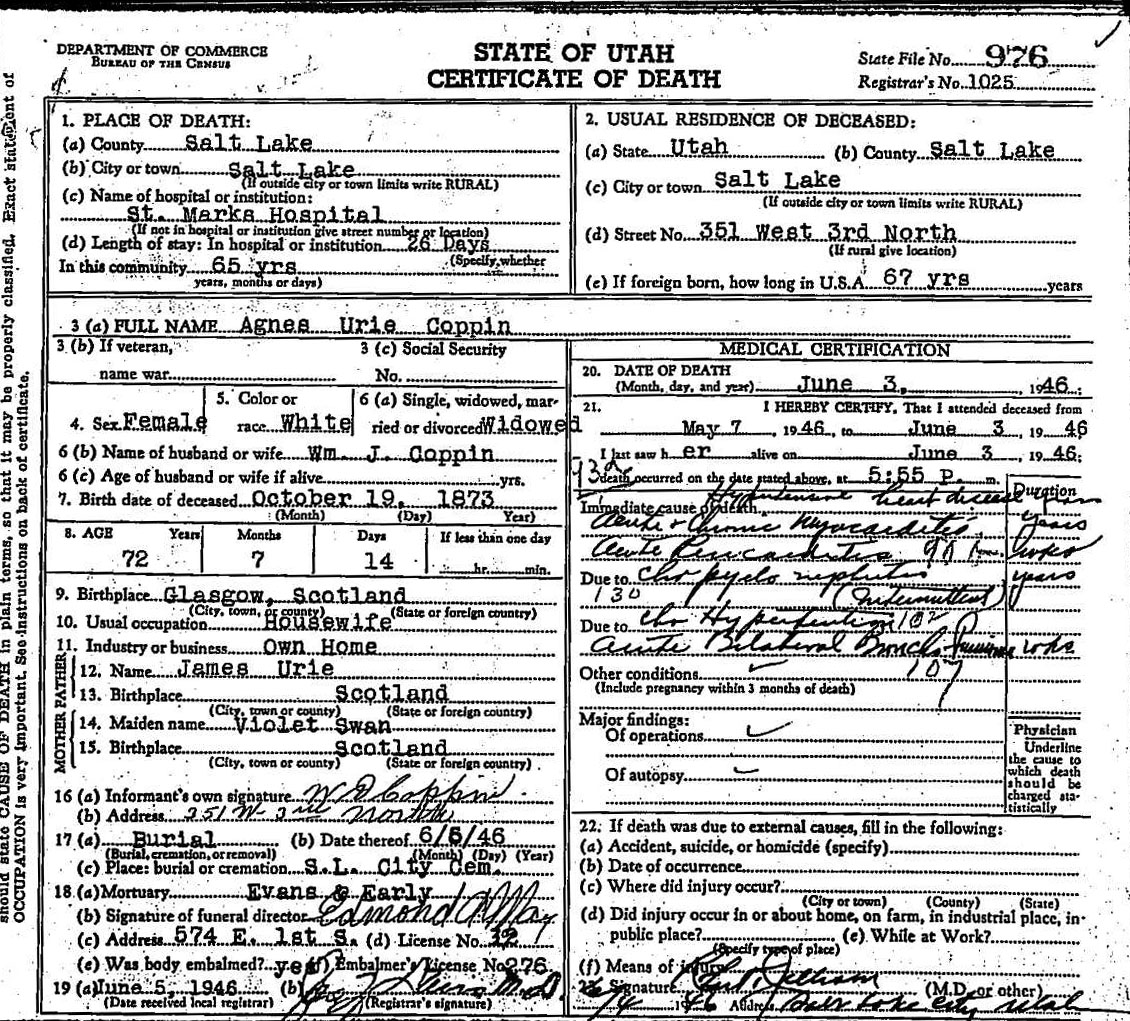 DEPARTMENT OF COMMERCE
BUREAU OF THE CENSUS
STATE OF UTAH
CERTIFICATE OF DEATH
State File No. 976
Registrar's No. 1025
should state CAUSE OF DEATH in plain terms, so that it may be properly classified. Exact statement of
OCCUPATION is very important. See instructions on back of certificate.
1. PLACE OF DEATH:
(a) County Salt Lake
(b) City or town Salt Lake
(If outside city or town limits write RURAL)
(c) Name of hospital or institution:
St. Marks Hospital
(If not in hospital or institution give street number or location)
(d) Length of stay: In hospital or institution 26 Days
(Specify whether
In this community 65 yrs
years, months or days)
2. USUAL RESIDENCE OF DECEASED:
(a) State Utah (b) County Salt Lake
(c) City or town Salt Lake
(If outside city or town limits write RURAL)
(d) Street No. 351 West 3rd North
(If rural give location)
(e) If foreign born, how long in U.S.A. 67 yrs years
3 (a) FULL NAME Agnes Urie Coppin
3 (b) If veteran,
name war
3 (c) Social Security
No.
4. Sex Female
5. Color or
race White
6 (a) Single, widowed, mar-
ried or divorced Widowed
6 (b) Name of husband or wife Wm. J. Coppin
6 (c) Age of husband or wife if alive yrs.
7. Birth date of deceased October 19, 1873
(Month) (Day) Year)
8. AGE Years Months Days If less than one day
72 7 14 hr. min.
9. Birthplace Glasgow, Scotland
(City, town, or county) (State or foreign country)
10. Usual occupation Housewife
11. Industry or business Own Home
FATHER
12. Name James Urie
13. Birthplace Scotland
(City, town or county) (State or foreign country)
MOTHER
14. Maiden name Violet Swan
15. Birthplace Scotland
(City, town or county) (State or foreign country)
16 (a) Informant's own signature W D Coppin
(b) Address 351 W 3rd North
17 (a) Burial (b) Date thereof 6/5/46
(Burial, cremation, or removal) (Month) (Day) (Year)
(c) Place: burial or cremation S.L. City Cem.
18 (a) Mortuary Evans & Early
(b) Signature of funeral director Edmond
(c) Address 574 E. 1st S. (d) License No. 32
(e) Was body embalmed? yes (f) Embalmer's License No 276
19 (a) June 5, 1946 (b) M.D.
(Date received local registrar) (Registrar's signature)
MEDICAL CERTIFICATION
20. DATE OF DEATH
(Month, day, and year) June 3, 1946;
21. I HEREBY CERTIFY, That I attended deceased from
May 7, 1946, to June 3, 1946
I last saw h er alive on June 3, 1946;
93d
death occurred on the date stated above, at 5:55 P. m.
Duration
Hypertensive heart disease
Immediate cause of death
Acute & Chronic Myocarditis years
Acute Pericarditis 90 wks
Due to Chr pyelo nephritis years
130 (Intermittent)
Due to Chr Hypertention 102
Acute Bilateral Broncho Pneumonia wks
Other conditions 107
(Include pregnancy within 3 months of death)
Major findings:
Of operations
Of autopsy
Physician
Underline
the cause to
which death
should be
charged sta-
tistically
22. If death was due to external causes, fill in the following:
(a) Accident, suicide, or homicide (specify)
(b) Date of occurrence
(c) Where did injury occur?
(City or town) (County) (State)
(d) Did injury occur in or about home, on farm, in industrial place, in-
public place? (e) While at Work?
(Specify type of place)
(f) Means of injury
23. Signature (M.D. or other)
6/4 1946 Address Salt Lake City Utah